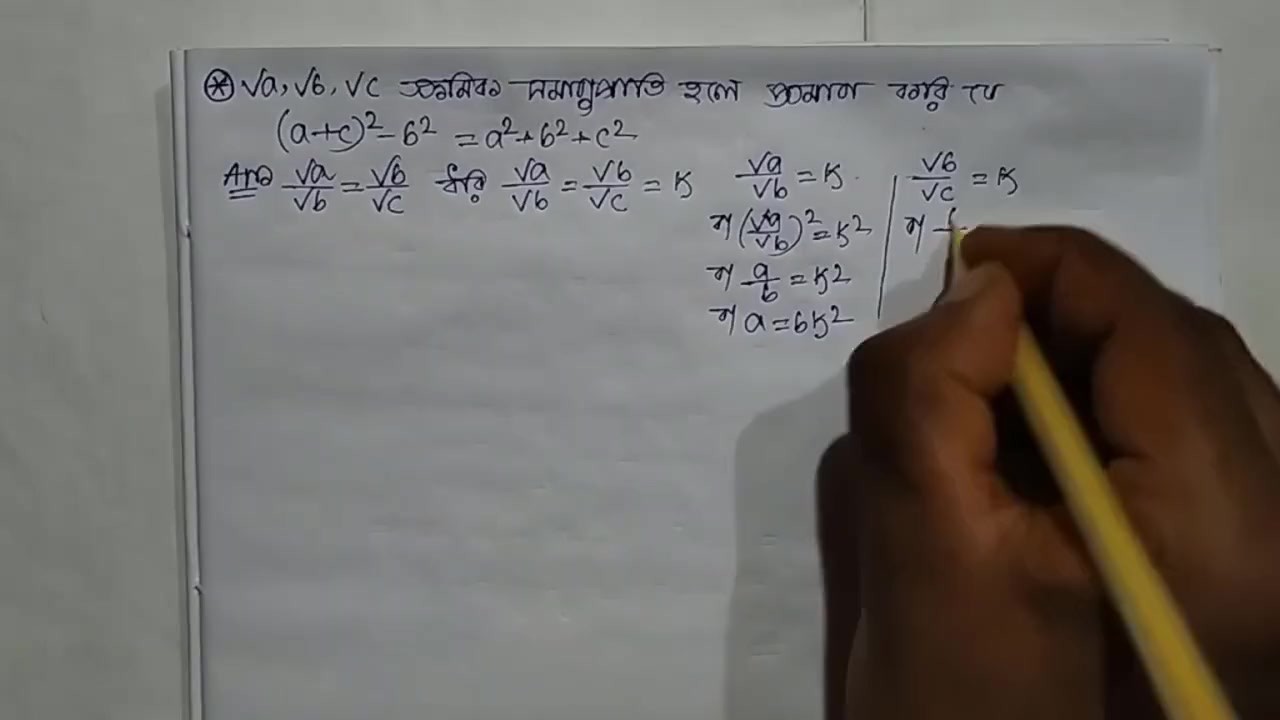 ⊛ √a, √b, √c ক্রমিক সমানুপাতি হলে প্রমাণ করি যে
(a+c)² - b² = a² + b² + c²
Ans √a/√b = √b/√c ধরি √a/√b = √b/√c = K
√a/√b = K
বা (√a/√b)² = K²
বা a/b = K²
বা a = bK²
√b/√c = K
বা